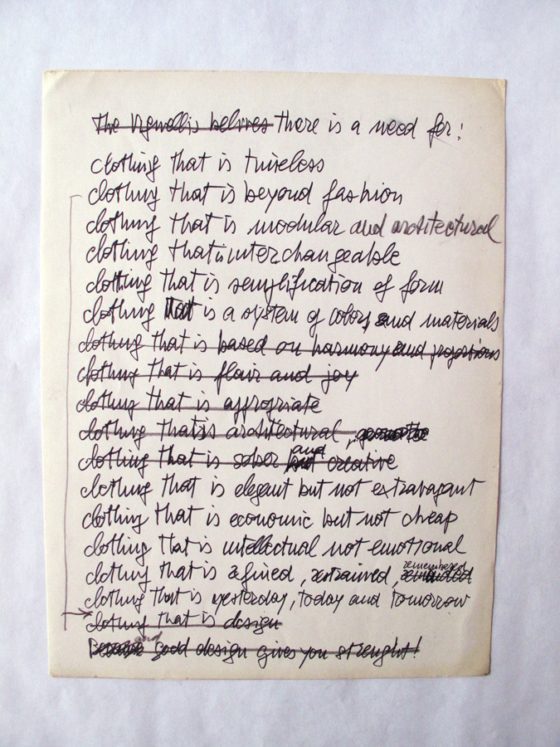 The Vignellis belives there is a need for:
clothing that is timeless
clothing that is beyond fashion
clothing that is modular and architectural
clothing that is interchangeable
clothing that is semplification of form
clothing that is a system of colors and materials
clothing that is based on harmony and proportions
clothing that is flair and joy
clothing that is appropriate
clothing that is architectural,
clothing that is sober and but creative
clothing that is elegant but not extravagant
clothing that is economic but not cheap
clothing that is intellectual not emotional
clothing that is refined, restrained, remembered
clothing that is yesterday, today and tomorrow
clothing that is design
Because good design gives you strenght!